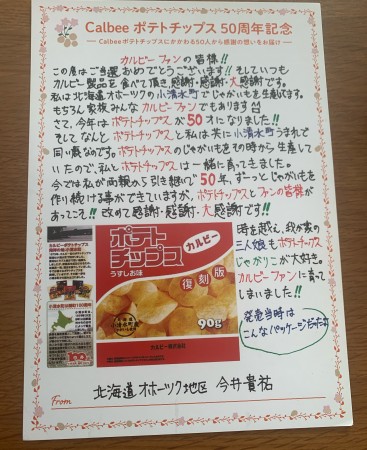 Calbee ポテトチップス 50周年記念
Calbeeポテトチップスにかかわる50人から感謝の想いをお届け
カルビーファンの皆様!!
この度はご当選おめでとうございます!そしていつも
カルビー製品を食べて頂き、感謝・感謝・大感謝です。
私は北海道オホーツクの小清水町でじゃがいもを生産してます。
もちろん家族みんなカルビーファンでもあります
さて、今年はポテトチップスが50才になりました!!
そして、なんとポテトチップスと私は共に小清水町うまれで
同い歳なのです。ポテトチップスのじゃがいもをその時から生産して
いたので、私とポテトチップスは一緒に育ってきました。
今では私が両親から引き継いで50年、ずーっとじゃがいもを
作り続ける事ができていますが、ポテトチップスとファンの皆様が
あってこそ!!改めて感謝・感謝・大感謝です!!
時を超え、我が家の
三人娘もポテトチップス
じゃがりこが大好きな
カルビーファンに育って
しまいました!!
発売当時は
こんなパッケージだったよ
ポテト
チップス
カルビー
うすしお味
復刻版
北海道
小清水町産
90g
カルビー株式会社
北海道オホーツク地区 今井貴祐
From